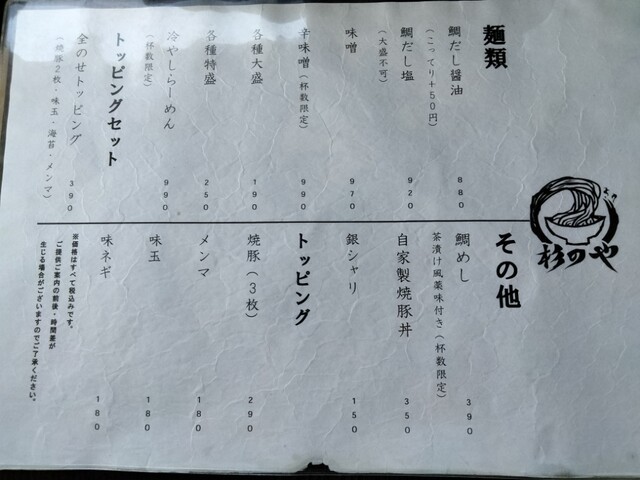 麺類
鯛だし醤油 880
(こってり+50円)
鯛だし塩 920
(大盛不可)
味噌 970
辛味噌(杯数限定) 990
各種大盛 190
各種特盛 250
冷やしらーめん 990
(杯数限定)
トッピングセット
全のせトッピング 390
(焼豚2枚・味玉・海苔・メンマ)
杉のや
その他
鯛めし 390
茶漬け風薬味付き(杯数限定)
自家製焼豚丼 350
銀シャリ 150
トッピング
焼豚(3枚) 290
メンマ 180
味玉 180
味ネギ 180
※価格はすべて税込みです。
ご提供ご案内の前後・時間差が
生じる場合がございますのでご了承ください。